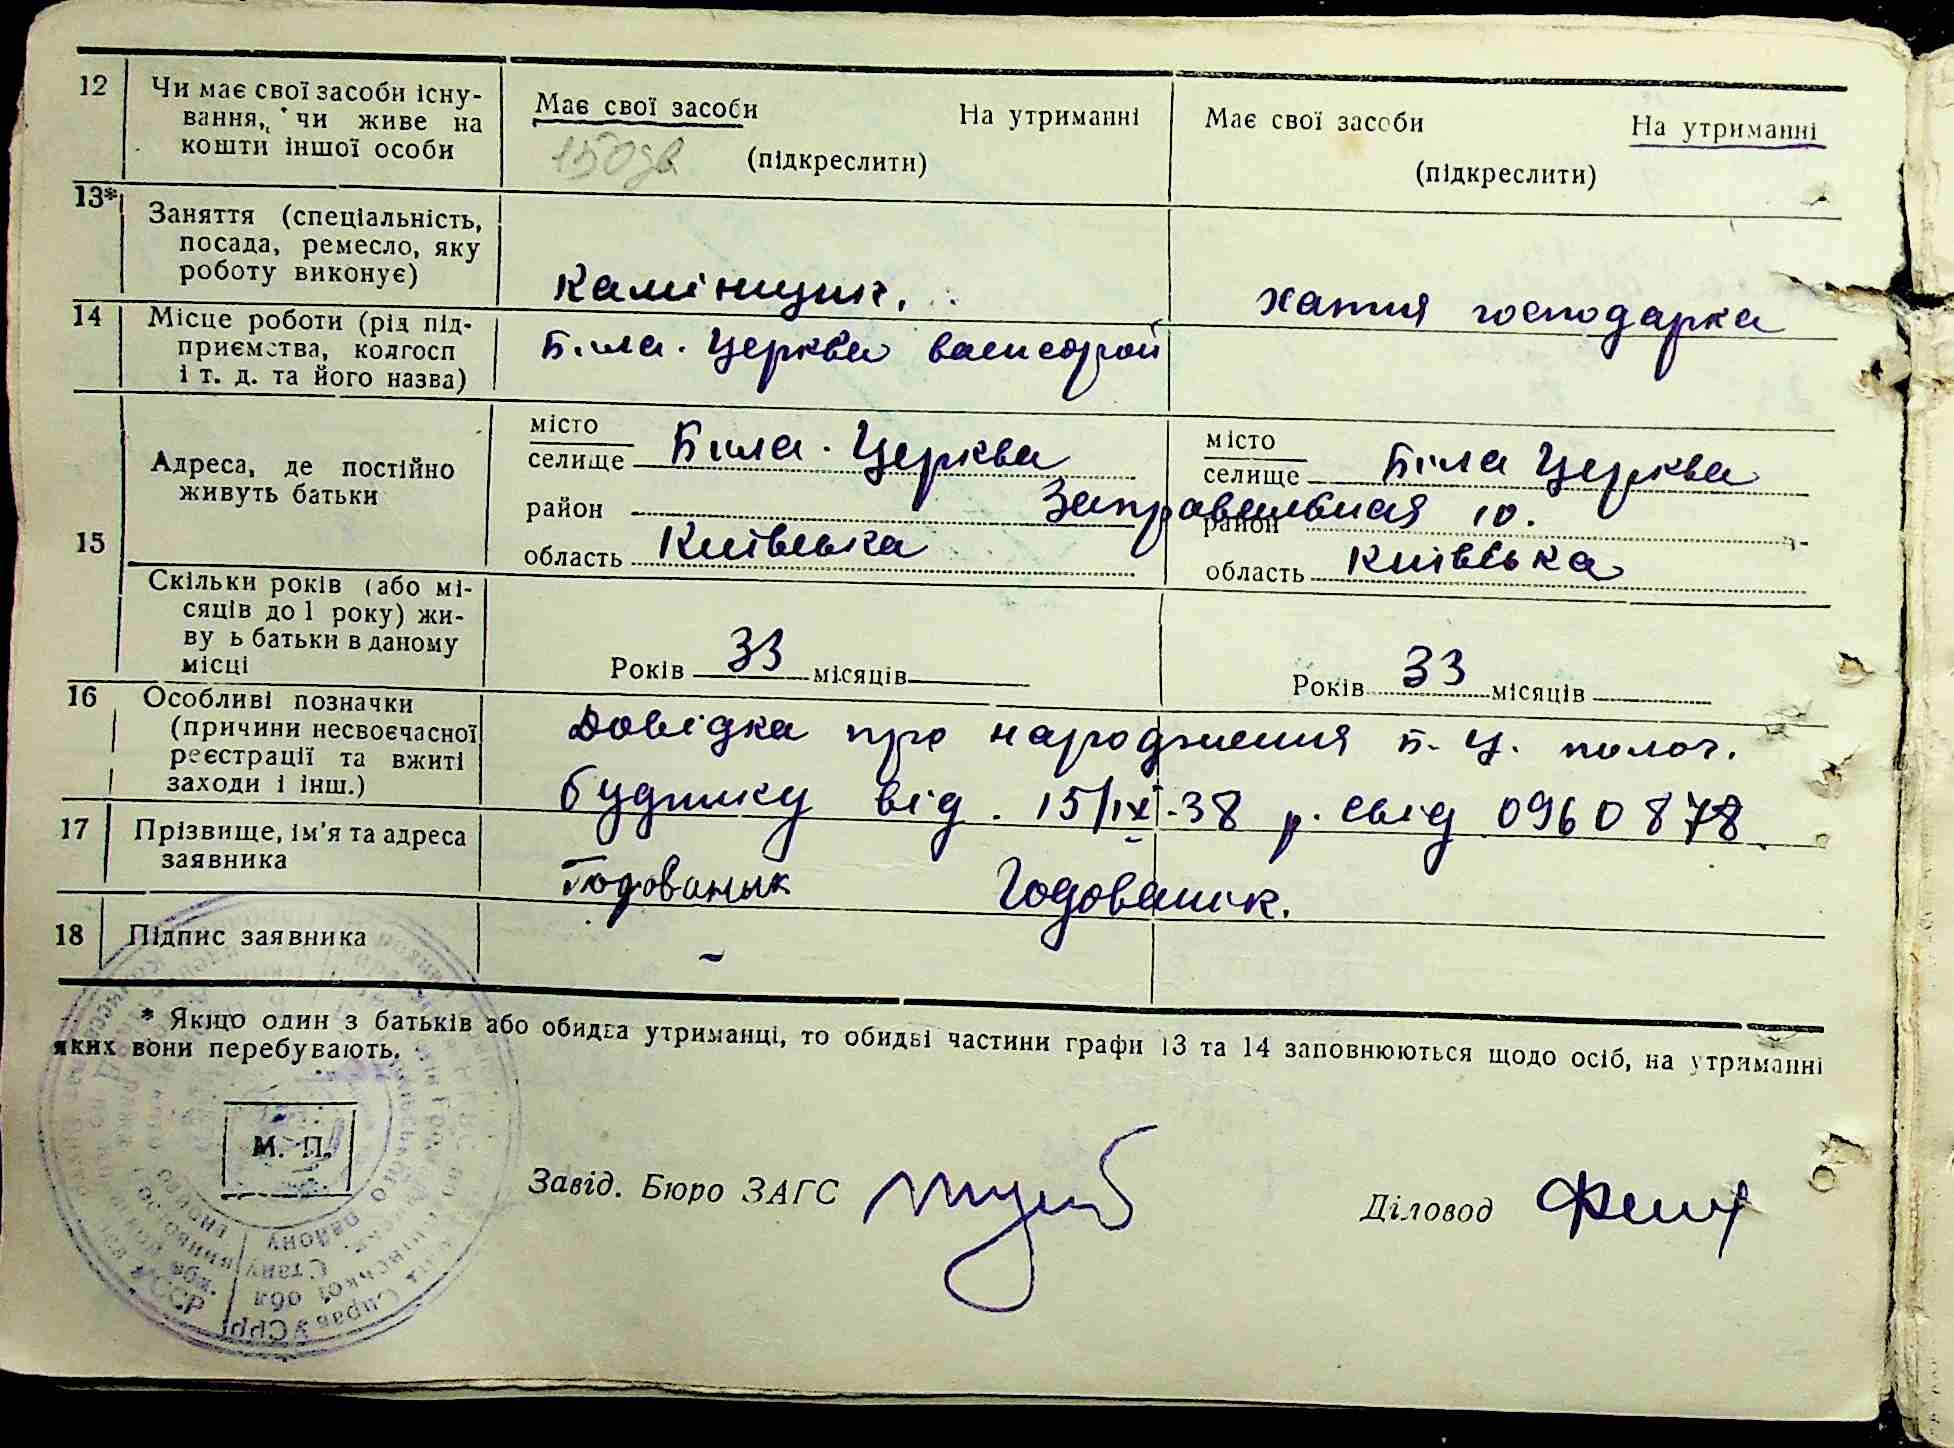 12 Чи має свої засоби існу-
вання, чи живе на
кошти іншої особи
Має свої засоби На утриманні
(підкреслити)
Має свої засоби На утриманні
(підкреслити)
13* Заняття (спеціальність,
посада, ремесло, яку
роботу виконує)
камінщик.
хатня господарка
14 Місце роботи (рід під-
приємства, колгосп
і т. д. та його назва)
Біла. Церква
15 Адреса, де постійно
живуть батьки
місто
селище Біла. Церква
район
область Київська
місто
селище Біла Церква
Заправельная 10.
район
область Київська
Скільки років (або мі-
сяців до 1 року) жи-
ву ь батьки в даному
місці
Років 33 місяців
Років 33 місяців
16 Особливі позначки
(причини несвоєчасної
реєстрації та вжиті
заходи і інш.)
Довідка про народження Б. Ц. полог.
будинку від. 15/IX-38 р. свід 0960878
17 Прізвище, ім'я та адреса
заявника
Годованик Годованик.
18 Підпис заявника
* Якщо один з батьків або обидва утриманці, то обидві частини графи 13 та 14 заповнюються щодо осіб, на утриманні
яких вони перебувають.
М. П.
Завід. Бюро ЗАГС
Діловод